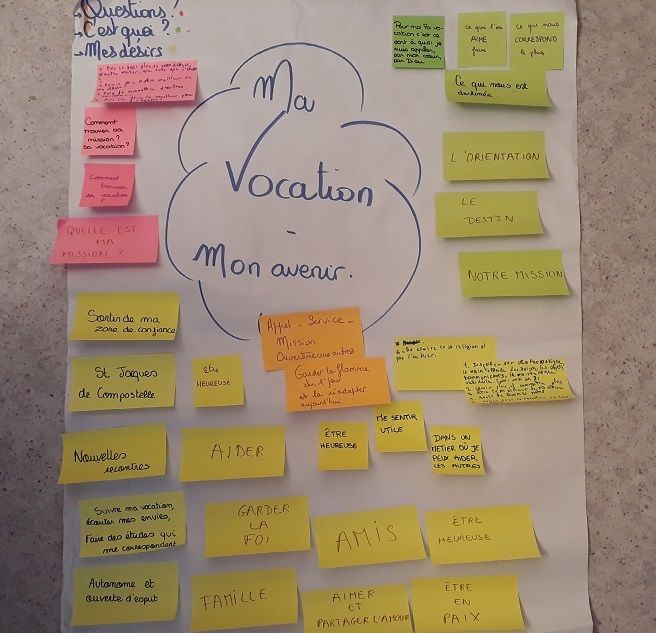 Questions!
C'est quoi?
Mes désirs
Ma
Vocation
-
Mon avenir.
Pour moi la vo-
cation c'est ce
dont à quoi je
suis appelée,
par mon cœur,
par Dieu
ce que l'on
AIME
faire
ce qui nous
CORRESPOND
le plus
Ce qui nous est
destinée
L'ORIENTATION
LE
DESTIN
NOTRE MISSION
Comment
trouver sa
mission?
Sa vocation?
Comment
trouver
sa vocation
QUELLE EST
MA
MISSION?
Sortir de ma
zone de confiance
St Jacques
de Compostelle
être
HEUREUSE
Appel - Service -
Mission
Ouverture aux autres
Garder la flamme
du 1er jour
et la réadapter
aujourd'hui
religion et
Nouvelles
recontres
AIDER
ÊTRE
HEUREUSE
ME SENTIR
UTILE
DANS UN
METIER OÙ JE
PEUX AIDER
LES AUTRES
Suivre ma vocation,
écouter mes envies,
Faire des études qui
me correspondent
GARDER
LA
FOI
AMIS
ÊTRE
HEUREUSE
Autonome et
ouverte d'esprit
FAMILLE
AIMER
ET
PARTAGER L'AMOUR
ÊTRE
EN
PAIX